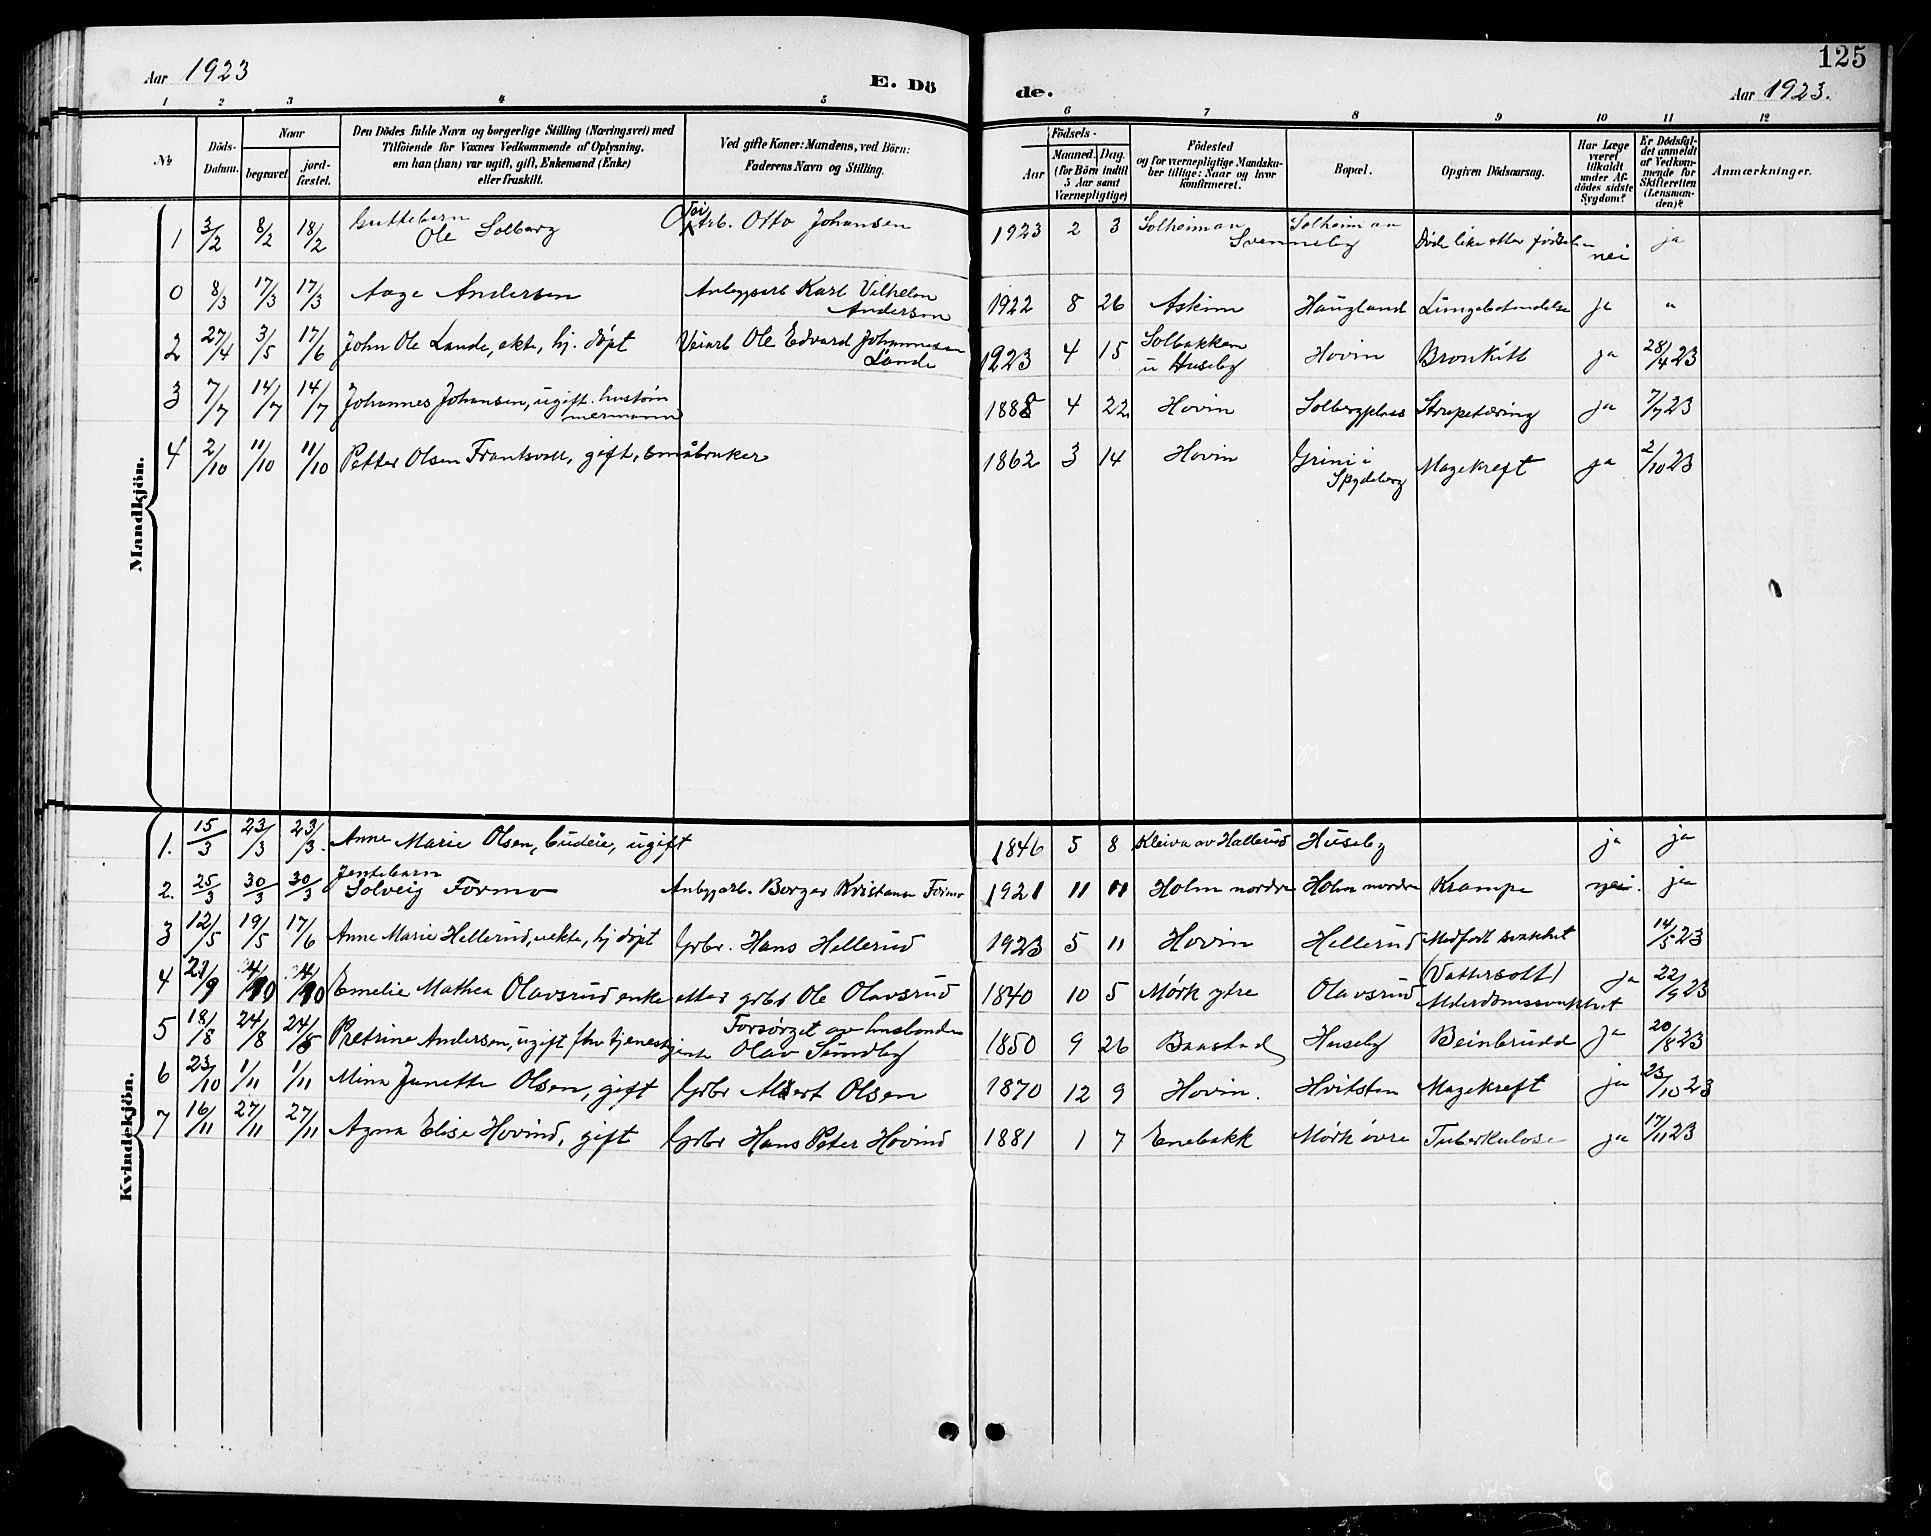 125
Aar 1923
E. Dö
de.
Aar 1923.
1 2 3 4 5 6 7 8 9 10 11 12
No
Döds-Datum.
Naar
begravet
jord-fæstet.
Den Dödes fulde Navn og borgerlige Stilling (Næringsvei) med
Tilföiende for Voxnes Vedkommende af Oplysning,
om han (hun) var ugift, gift, Enkemand (Enke)
eller fraskilt.
Ved gifte Koner: Mandens, ved Börn:
Faderens Navn og Stilling.
Födsels-
Aar
Maaned. Dag.
(for Börn indtil
5 Aar samt
Værnepligtige)
Födested
og for værnepligtige Mandska-
ber tillige: Naar og hvor
konfirmeret.
Bopæl.
Opgiven Dödsaarsag.
Har Læge
været
tilkaldt
under Af-
dödes sidste
Sygdom?
Er Dödsfal-
det anmeldt
af Vedkom-
mende for
Skifteretten
(Lensman-
den)?
Anmærkninger.
Mandkjön.
1 3/2 8/2 18/2 Guttebarn Ole Solberg Arb. Otto Johansen 1923 2 3 Solheim au Svenneby Solheim au Døde like efter fødselen nei ja
0 8/3 17/3 17/3 Aage Andersen Anlegsarb Karl Vilhelm Andersen 1922 8 26 Askim Haugland Lungebetendelse ja "
2 27/4 3/5 17/6 John Ole Lande, ekte, hj. døpt Veiarb Ole Edvard Johannesen Lande 1923 4 15 Solbakken u Huseby Hovin Bronkitt ja 28/4 23
3 7/7 14/7 14/7 Johannes Johansen, ugift. hustømmermann 1888 4 22 Hovin Solbergplass Strupetæring ja 7/7 23
4 2/10 11/10 11/10 Petter Olsen Frantsvoll, gift, småbruker 1862 3 14 Hovin Grini i Spydeberg Magekreft ja 2/10 23
Kvindekjön.
1. 15/3 23/3 23/3. Anne Marie Olsen, budeie, ugift 1846 5 8 Kleiva av Hallerud Huseby ja ja
2. 25/3 30/3 30/3 Jentebarn Solveig Formo Anlegsarb. Borger Kristiansen Formo 1921 11 11 Holm nordre Holm nordre Krampe nei. ja
3 12/5 19/5 17/6 Anne Marie Hellerud, uekte, hj døpt Grbr. Hans Hellerud 1923 5 11 Hovin Hellerud Medfødt svakhet 14/5 23
4 21/9 4/10 4/10 Emelie Mathea Olavsrud enke etter grbr Ole Olavsrud 1840 10 5 Mørk ytre Olavsrud (Vattersott) Alderdomssvakhet ja 22/9 23
5 18/8 24/8 24/8 Petrine Andersen, ugift fhv tjenestejente Forsørget av husbonden Olav Sundby 1850 9 26 Baastad Huseby Beinbrudd ja 20/8 23
6 23/10 1/11 1/11 Mina Janette Olsen, gift Grbr Albert Olsen 1870 12 9 Hovin. Hvitsten Magekreft ja 23/10 23
7 16/11 27/11 27/11 Agna Elise Hovind, gift Grbr Hans Peter Hovind 1881 1 7 Enebakk Mørk øvre Tuberkulose ja 17/11 23